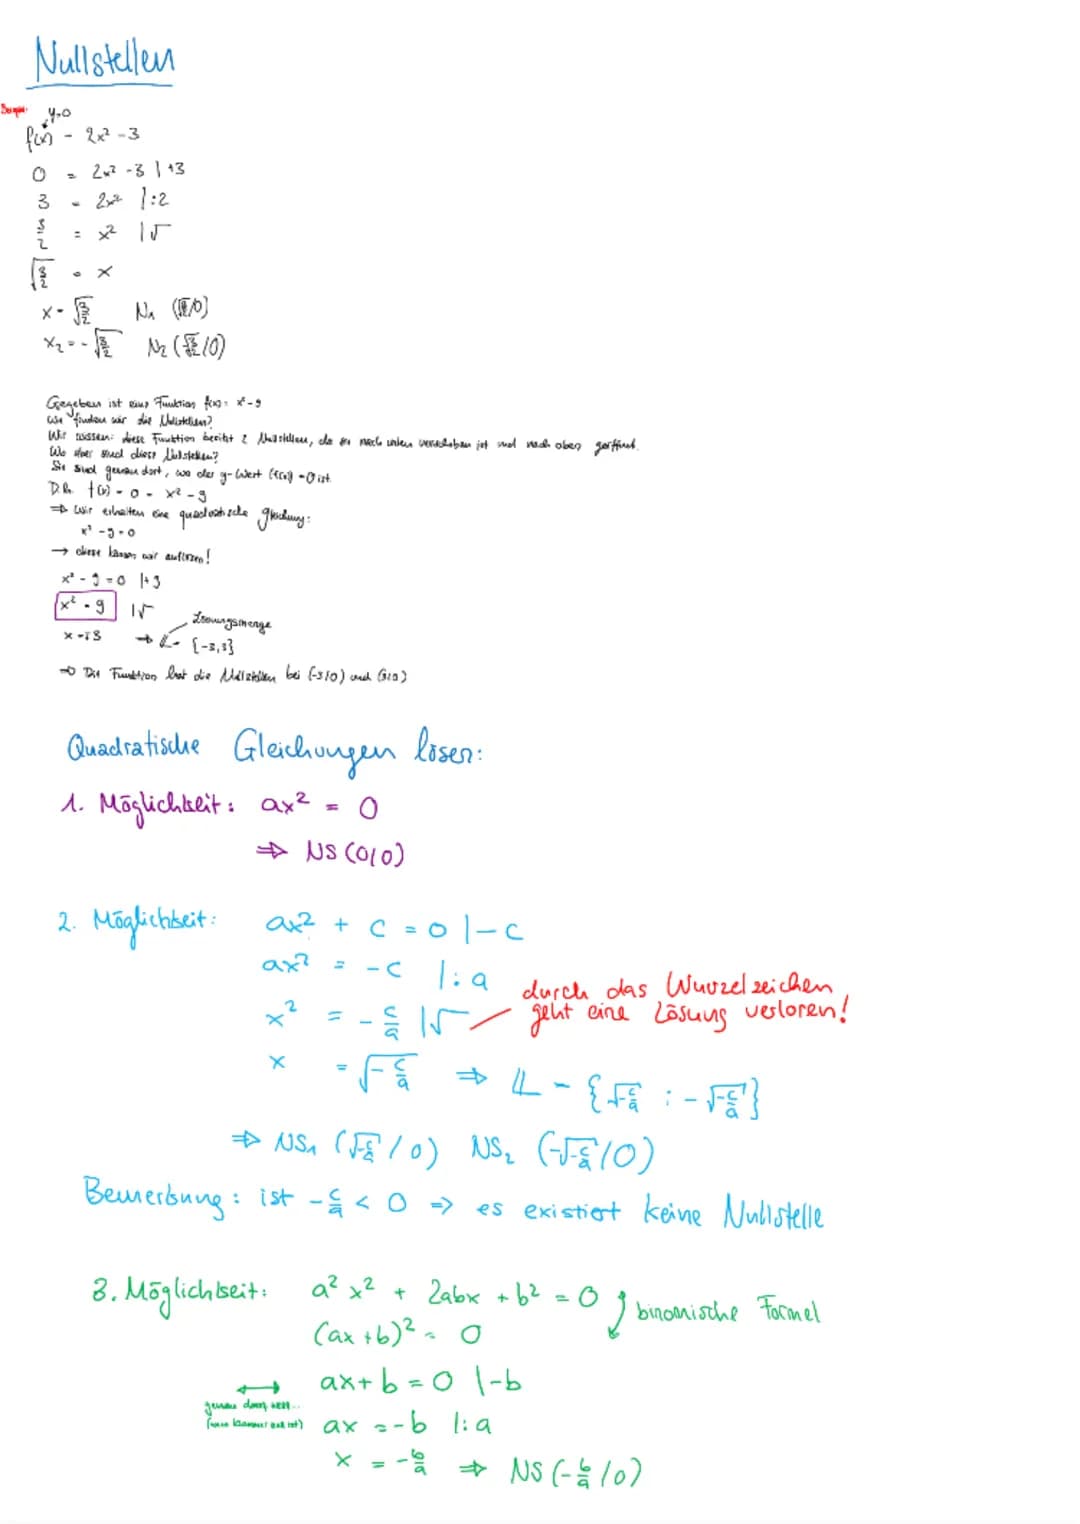 Nullstellen
y=0
f(x) = 2x² - 3
0 = 2x² - 3 | +3
3 = 2x² | :2
3/2 = x² | √
√3/2 = x
x = √3/2 N₁ (√3/2/0)
x₂ = -√3/2 N₂ (√3/2/0)
Gegeben ist eine Funktion f(x) = x² - 9
Wie finden wir die Nullstellen?
Wir wissen: diese Funktion besitzt 2 Nullstellen, da sie nach unten verschoben ist und nach oben geöffnet.
Wo aber sind diese Nullstellen?
Sie sind genau dort, wo der y-Wert (f(x)) = 0 ist.
D.h. f(x) = 0 = x² - 9
⇒ Wir erhalten eine quadratische Gleichung:
x² - 9 = 0
→ diese können wir auflösen!
x² - 9 = 0 | +9
x² = 9 | √
Lösungsmenge
x = ±3 → 𝕃 = {-3,3}
⇒ Die Funktion hat die Nullstellen bei (-3/0) und (3/0)
Quadratische Gleichungen lösen:
1. Möglichkeit: ax² = 0
⇒ NS (0/0)
2. Möglichkeit: ax² + c = 0 | -c
ax² = -c | :a
durch das Wurzelzeichen
x² = -c/a | √
geht eine Lösung verloren!
x = √-c/a ⇒ 𝕃 = {√-c/a ; -√-c/a}
⇒ NS₁ (√-c/a / 0) NS₂ (-√-c/a / 0)
Bemerkung: ist -c/a < 0 => es existiert keine Nullstelle
3. Möglichkeit: a²x² + 2abx + b² = 0
binomische Formel
(ax + b)² = 0
↔ ax + b = 0 | -b
genau dann, wenn...
ax = -b | :a
x = -b/a ⇒ NS (-b/a / 0)